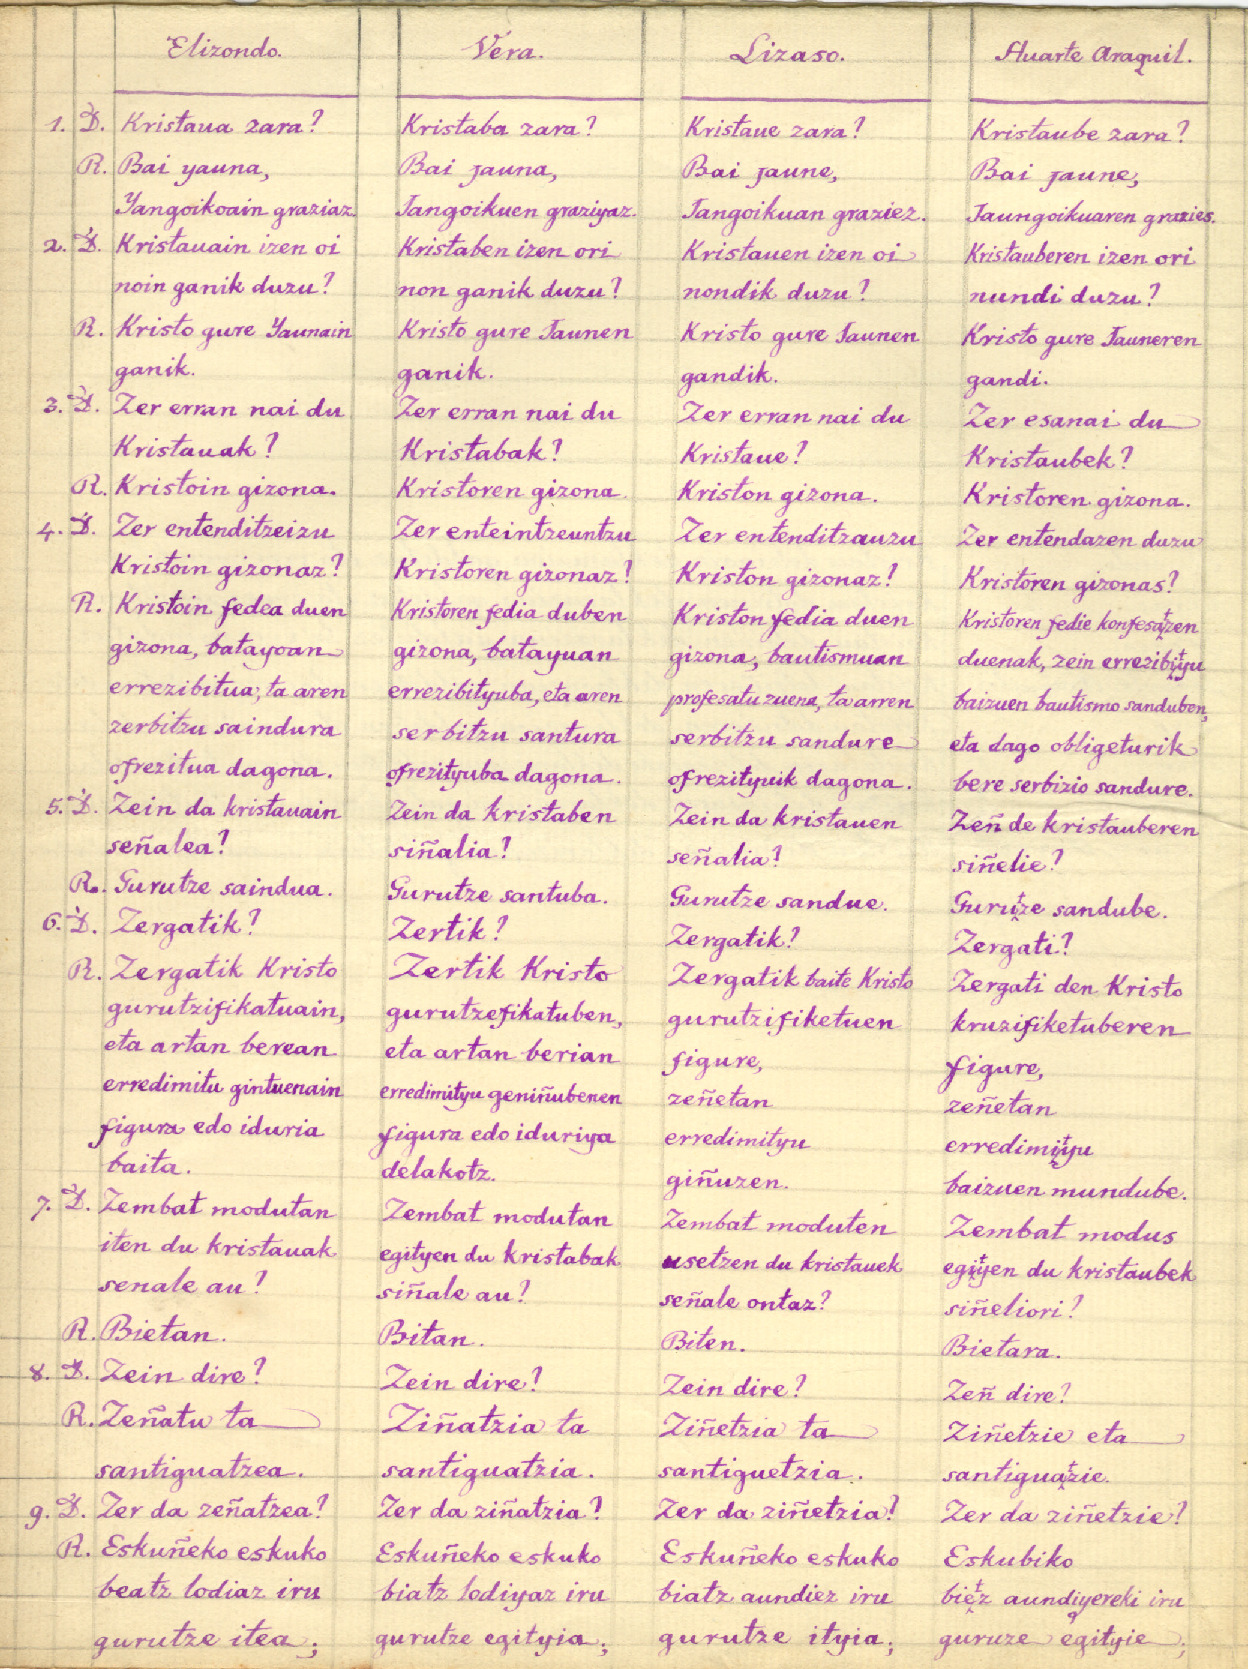 Elizondo. Vera. Lizaso. Huarte Araquil.
1. D. Kristaua zara? Kristaba zara? Kristaue zara? Kristaube zara?
R. Bai yauna, Bai jauna, Bai jaune, Bai jaune,
Yangoikoain graziaz. Jangoikuen graziyaz. Jangoikuan graziez. Jaungoikuaren grazies.
2. D. Kristauain izen oi Kristaben izen ori Kristauen izen oi Kristauberen izen ori
noin ganik duzu? non ganik duzu? nondik duzu? nundi duzu?
R. Kristo gure Yaunain Kristo gure Jaunen Kristo gure Jaunen Kristo gure Jauneren
ganik. ganik. gandik. gandi.
3. D. Zer erran nai du Zer erran nai du Zer erran nai du Zer esanai du
Kristauak? Kristabak? Kristaue? Kristaubek?
R. Kristoin gizona. Kristoren gizona. Kriston gizona. Kristoren gizona.
4. D. Zer entenditzeizu Zer enteintzeuntzu Zer entenditzauzu Zer entendazen duzu
Kristoin gizonaz? Kristoren gizonaz? Kriston gizonaz? Kristoren gizonas?
R. Kristoin fedea duen Kristoren fedia duben Kriston fedia duen Kristoren fedie konfesatzen
gizona, batayoan gizona, batayuan gizona, bautismuan duenak, zein errezibityu
errezibitua, ta aren errezibityuba, eta aren profesatu zuena, ta arren baizuen bautismo sanduben,
zerbitzu saindura serbitzu santura serbitzu sandure eta dago obligeturik
ofrezitua dagona. ofrezityuba dagona. ofrezityuik dagona. bere serbizio sandure.
5. D. Zein da kristauain Zein da kristaben Zein da kristauen Zeñ de kristauberen
señalea? siñalia? señalia? siñelie?
R. Gurutze saindua. Gurutze santuba. Gurutze sandue. Gurutze sandube.
6. D. Zergatik? Zertik? Zergatik? Zergati?
R. Zergatik Kristo Zertik Kristo Zergatik baite Kristo Zergati den Kristo
gurutzifikatuain, gurutzefikatuben, gurutzifiketuen kruzifiketuberen
eta artan berean eta artan berian figure, figure,
erredimitu gintuenain erredimityu geniñubenen zeñetan zeñetan
figura edo iduria figura edo iduriya erredimityu erredimityu
baita. delakotz. giñuzen. baizuen mundube.
7. D. Zembat modutan Zembat modutan Zembat moduten Zembat modus
iten du kristauak egityen du kristabak usetzen du kristauek egityen du kristaubek
senale au? siñale au? señale ontaz? siñeliori?
R. Bietan. Bitan. Biten. Bietara.
8. D. Zein dire? Zein dire? Zein dire? Zeñ dire?
R. Zeñatu ta Ziñatzia ta Ziñetzia ta Ziñetzie eta
santiguatzea. santiguatzia. santiguetzia. santiguatzie.
9. D. Zer da zeñatzea? Zer da ziñatzia? Zer da ziñetzia? Zer da ziñetzie?
R. Eskuñeko eskuko Eskuñeko eskuko Eskuñeko eskuko Eskubiko
beatz lodiaz iru biatz lodiyaz iru biatz aundiez iru bietz aundiyereki iru
gurutze itea; gurutze egityia; gurutze ityia; guruze egityie;